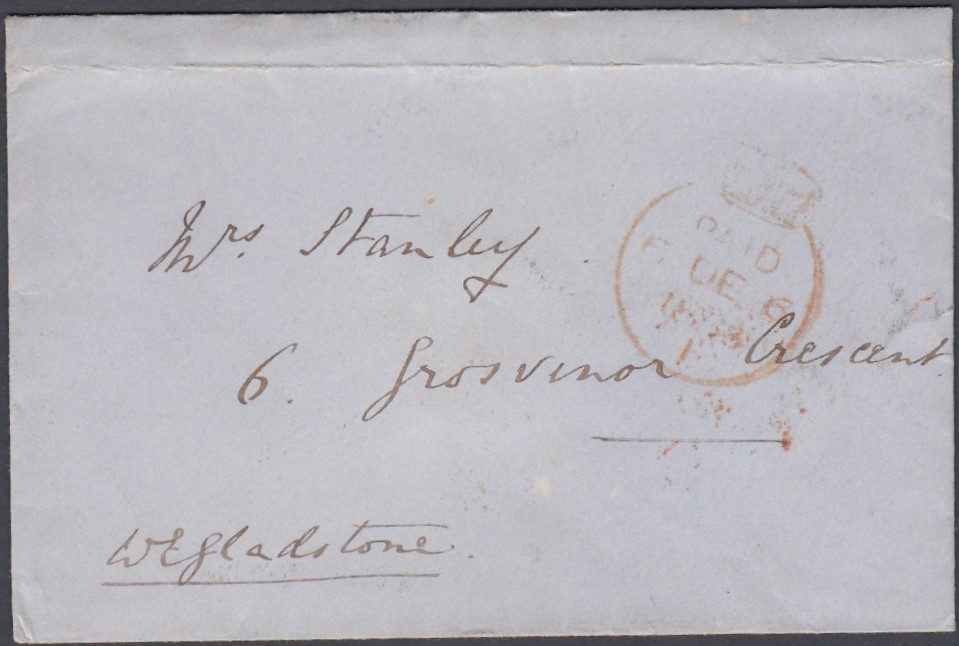 Mrs. Stanley
PAID
DE 6
6. Grosvenor Crescent
WEGladstone.